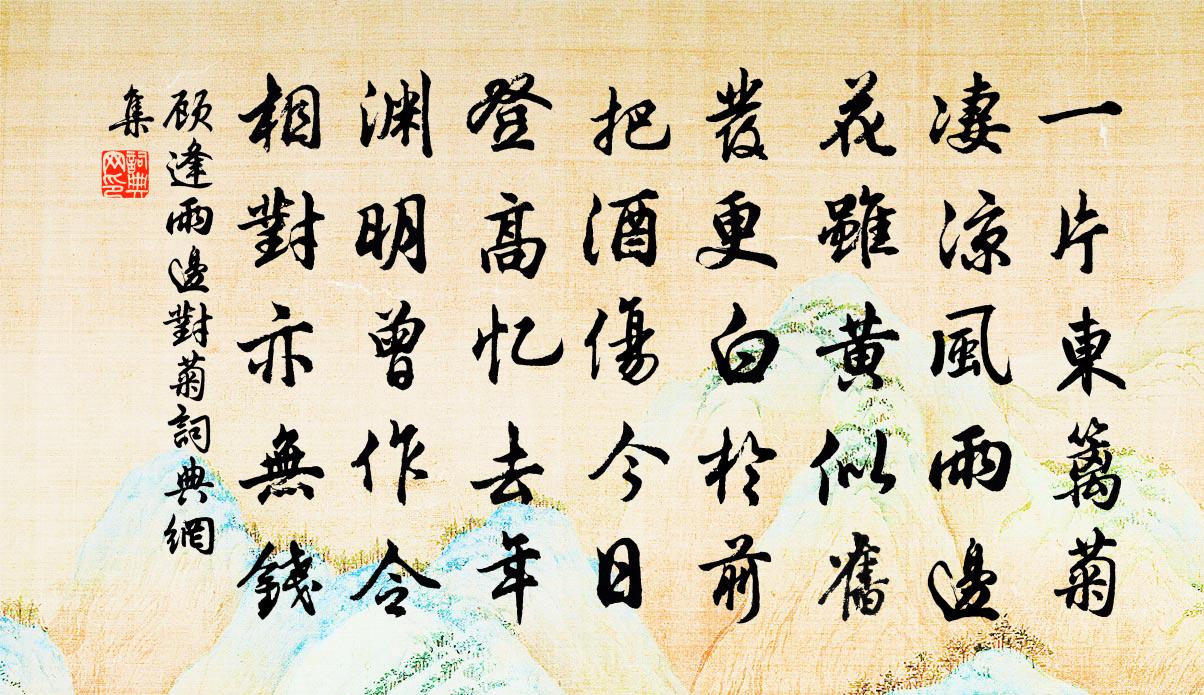 一片東籬菊
凄涼風雨邊
花雖黃似舊
髮更白於前
把酒傷今日
登高忆去年
渊明曾作令
相對亦無錢
顾逢雨邊對菊詞典網
集
詞典网印